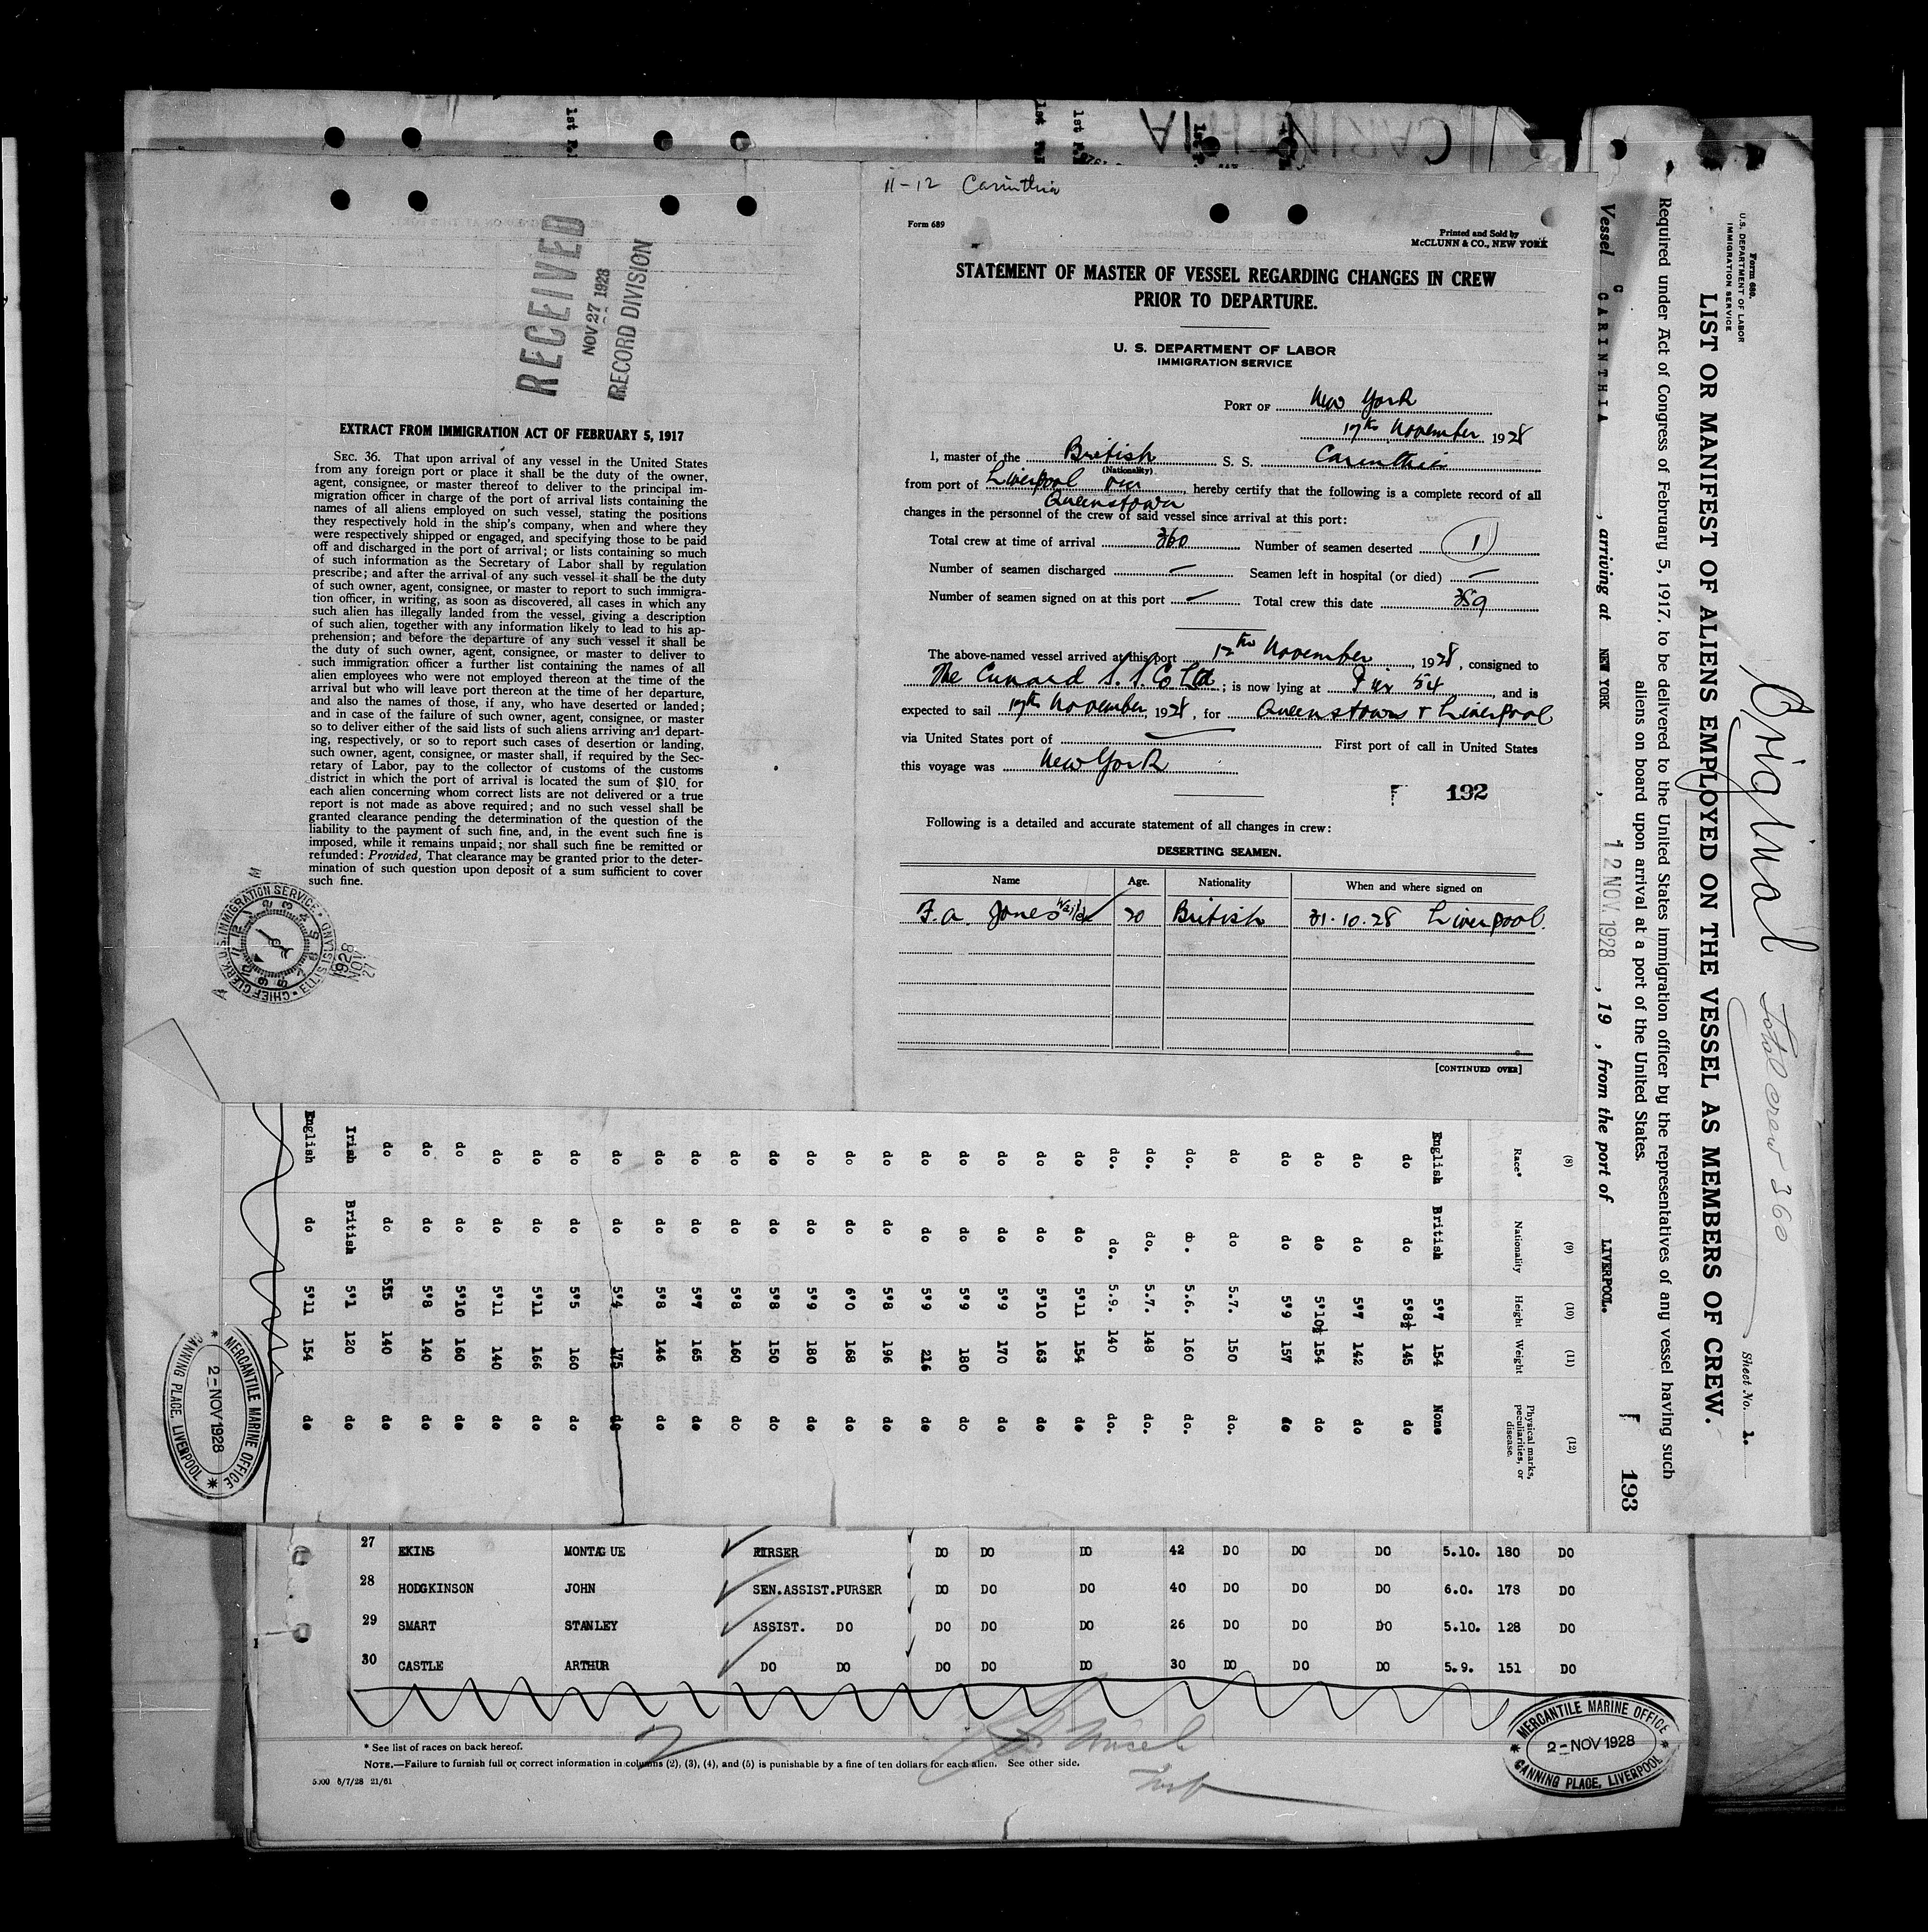 1st
1st
1st
CARINTHIA
RECEIVED
NOV 27 1928
RECORD DIVISION
EXTRACT FROM IMMIGRATION ACT OF FEBRUARY 5, 1917
SEC. 36. That upon arrival of any vessel in the United States
from any foreign port or place it shall be the duty of the owner,
agent, consignee, or master thereof to deliver to the principal im-
migration officer in charge of the port of arrival lists containing the
names of all aliens employed on such vessel, stating the positions
they respectively hold in the ship's company, when and where they
were respectively shipped or engaged, and specifying those to be paid
off and discharged in the port of arrival; or lists containing so much
of such information as the Secretary of Labor shall by regulation
prescribe; and after the arrival of any such vessel it shall be the duty
of such owner, agent, consignee, or master to report to such immigra-
tion officer, in writing, as soon as discovered, all cases in which any
such alien has illegally landed from the vessel, giving a description
of such alien, together with any information likely to lead to his ap-
prehension; and before the departure of any such vessel it shall be
the duty of such owner, agent, consignee, or master to deliver to
such immigration officer a further list containing the names of all
alien employees who were not employed thereon at the time of the
arrival but who will leave port thereon at the time of her departure,
and also the names of those, if any, who have deserted or landed;
and in case of the failure of such owner, agent, consignee, or master
so to deliver either of the said lists of such aliens arriving and depart-
ing, respectively, or so to report such cases of desertion or landing,
such owner, agent, consignee, or master shall, if required by the Sec-
retary of Labor, pay to the collector of customs of the customs
district in which the port of arrival is located the sum of $10 for
each alien concerning whom correct lists are not delivered or a true
report is not made as above required; and no such vessel shall be
granted clearance pending the determination of the question of the
liability to the payment of such fine, and, in the event such fine is
imposed, while it remains unpaid; nor shall such fine be remitted or
refunded: Provided, That clearance may be granted prior to the deter-
mination of such question upon deposit of a sum sufficient to cover
such fine.
CHIEF CLERK, U.S. IMMIGRATION SERVICE · ELLIS ISLAND
1928 NOV 27
11-12 Carinthia
Form 689
Printed and Sold by
McCLUNN & CO., NEW YORK
STATEMENT OF MASTER OF VESSEL REGARDING CHANGES IN CREW
PRIOR TO DEPARTURE.
U. S. DEPARTMENT OF LABOR
IMMIGRATION SERVICE
PORT OF New York
17th November, 1928
I, master of the British S. S. Carinthia
(Nationality)
from port of Liverpool via Queenstown, hereby certify that the following is a complete record of all
changes in the personnel of the crew of said vessel since arrival at this port:
Total crew at time of arrival 360 Number of seamen deserted 1
Number of seamen discharged — Seamen left in hospital (or died) —
Number of seamen signed on at this port — Total crew this date 359
The above-named vessel arrived at this port 12th November, 1928, consigned to
The Cunard S. S. Co Ltd; is now lying at Pier 54, and is
expected to sail 17th November, 1928, for Queenstown & Liverpool
via United States port of — First port of call in United States
this voyage was New York
192
Following is a detailed and accurate statement of all changes in crew:
DESERTING SEAMEN.
Name Age. Nationality When and where signed on
F. A. Jones Waiter 20 British 31.10.28 Liverpool.
[CONTINUED OVER]
Form 689.
U.S. DEPARTMENT OF LABOR
IMMIGRATION SERVICE
Original Total crew 360
Sheet No. 1.
LIST OR MANIFEST OF ALIENS EMPLOYED ON THE VESSEL AS MEMBERS OF CREW.
Required under Act of Congress of February 5, 1917, to be delivered to the United States immigration officer by the representatives of any vessel having such
aliens on board upon arrival at a port of the United States.
Vessel CARINTHIA, arriving at NEW YORK, 12 NOV. 1928, 19 , from the port of LIVERPOOL.
193
(8) (9) (10) (11) (12)
Race* Nationality Height Weight Physical marks, peculiarities, or disease.
English British 5'7 154 None
do do 5'8½ 145 do
do do 5'7 142 do
do do 5'10½ 154 do
do do 5'9 157 do
do do 5.7. 150 do.
do. do. 5.6. 160 do.
do. do. 5.7. 148 do.
do. do. 5.9. 140 do.
do do 5'11 154 do
do do 5'10 163 do
do do 5'9 170 do
do do 5'9 180 do
do do 5'9 216 do
do do 5'8 196 do
do do 6'0 168 do
do do 5'9 180 do
do do 5'8 150 do
do do 5'8 160 do
do do 5'7 165 do
do do 5'8 146 do
do do 5'4 175 do
do do 5'5 160 do
do do 5'11 166 do
do do 5'11 140 do
do do 5'10 160 do
do do 5'8 140 do
do do 5'5 140 do
Irish British 5'1 120 do
English do 5'11 154 do
MERCANTILE MARINE OFFICE
2-NOV 1928
CANNING PLACE, LIVERPOOL
27 EKINS MONTAGUE PURSER DO DO DO 42 DO DO DO 5.10. 180 DO
28 HODGKINSON JOHN SEN.ASSIST.PURSER DO DO DO 40 DO DO DO 6.0. 178 DO
29 SMART STANLEY ASSIST. DO DO DO DO 26 DO DO DO 5.10. 128 DO
30 CASTLE ARTHUR DO DO DO DO DO 30 DO DO DO 5.9. 151 DO
* See list of races on back hereof.
NOTE.—Failure to furnish full or correct information in columns (2), (3), (4), and (5) is punishable by a fine of ten dollars for each alien. See other side.
5000 8/7/28 21/61
MERCANTILE MARINE OFFICE
2-NOV 1928
CANNING PLACE, LIVERPOOL